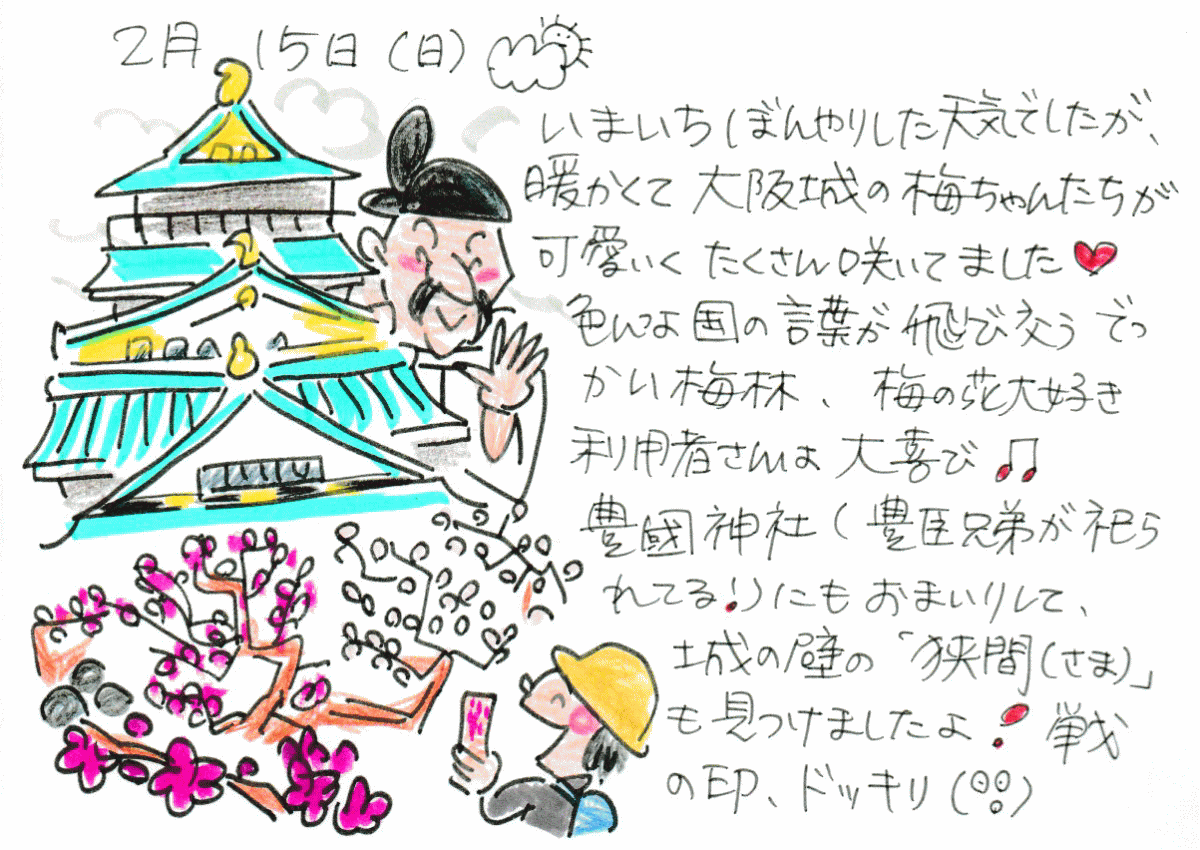 2月 15日(日)
いまいち ぼんやりした天気でしたが、
暖かくて 大阪城の梅ちゃんたちが
可愛いく たくさん咲いてました
色んな国の言葉が飛び交うでっ
かい梅林、梅の花大好き
利用者さんは 大喜び♫
豊國神社(豊臣兄弟が祀ら
れてる!)にも おまいりして、
城の壁の「狭間(さま)」
も見つけましたよ! 戦
の印、ドッキリ